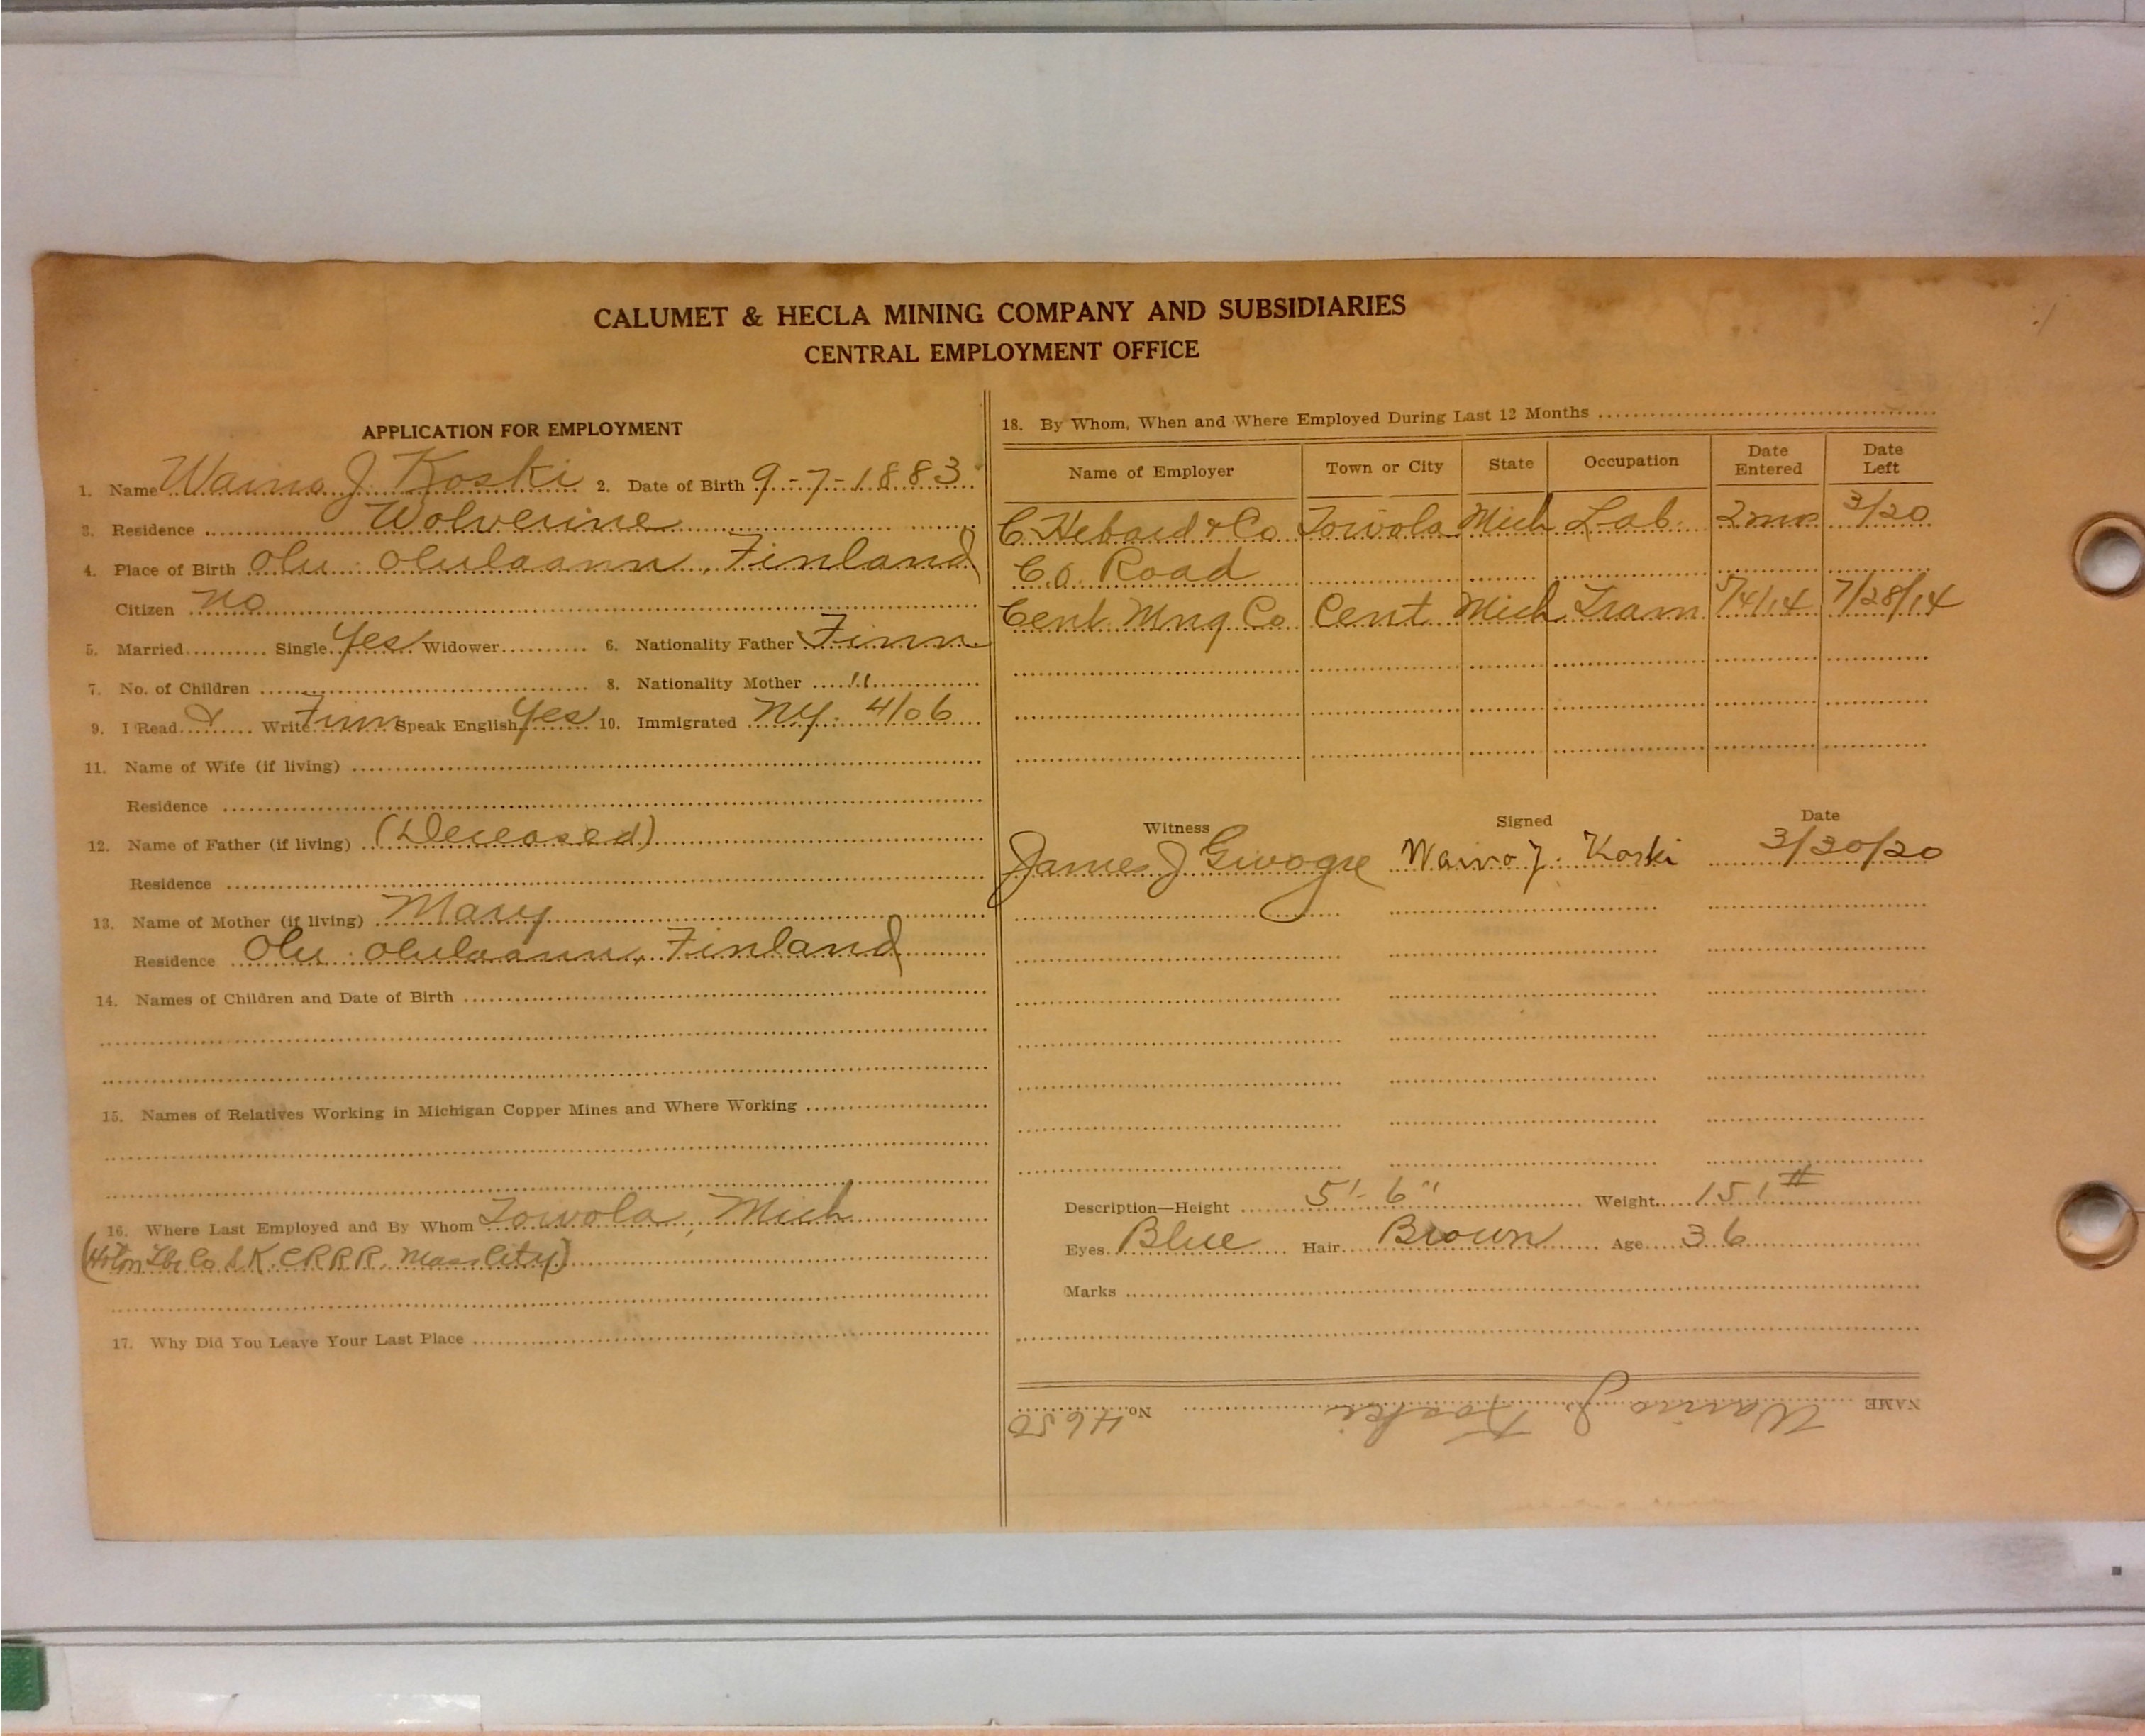 CALUMET & HECLA MINING COMPANY AND SUBSIDIARIES
CENTRAL EMPLOYMENT OFFICE
APPLICATION FOR EMPLOYMENT
1. Name Waino J. Koski 2. Date of Birth 9-7-1883
3. Residence Wolverine
4. Place of Birth Olu Olulaann, Finland
Citizen No
5. Married Single Yes Widower 6. Nationality Father Finn
7. No. of Children 8. Nationality Mother "
9. I Read & Write Finn Speak English Yes 10. Immigrated N.Y. 4/06
11. Name of Wife (if living)
Residence
12. Name of Father (if living) (Deceased)
Residence
13. Name of Mother (if living) Mary
Residence Olu Olulaann, Finland
14. Names of Children and Date of Birth
15. Names of Relatives Working in Michigan Copper Mines and Where Working
16. Where Last Employed and By Whom Towola, Mich
Co & K. C R R R. Mass City)
17. Why Did You Leave Your Last Place
18. By Whom, When and Where Employed During Last 12 Months
Name of Employer Town or City State Occupation Date Entered Date Left
C. Hebard & Co Towola Mich Lab. 2 mo 3/20
Co. Road
Cent. Mng Co Cent Mich Tram 5/4/14 7/28/14
Witness Signed Date
James J Waino J. Koski 3/30/20
Description—Height 5'-6" Weight 151#
Eyes Blue Hair Brown Age 36
Marks
NAME Waino J. Koski No. 4650